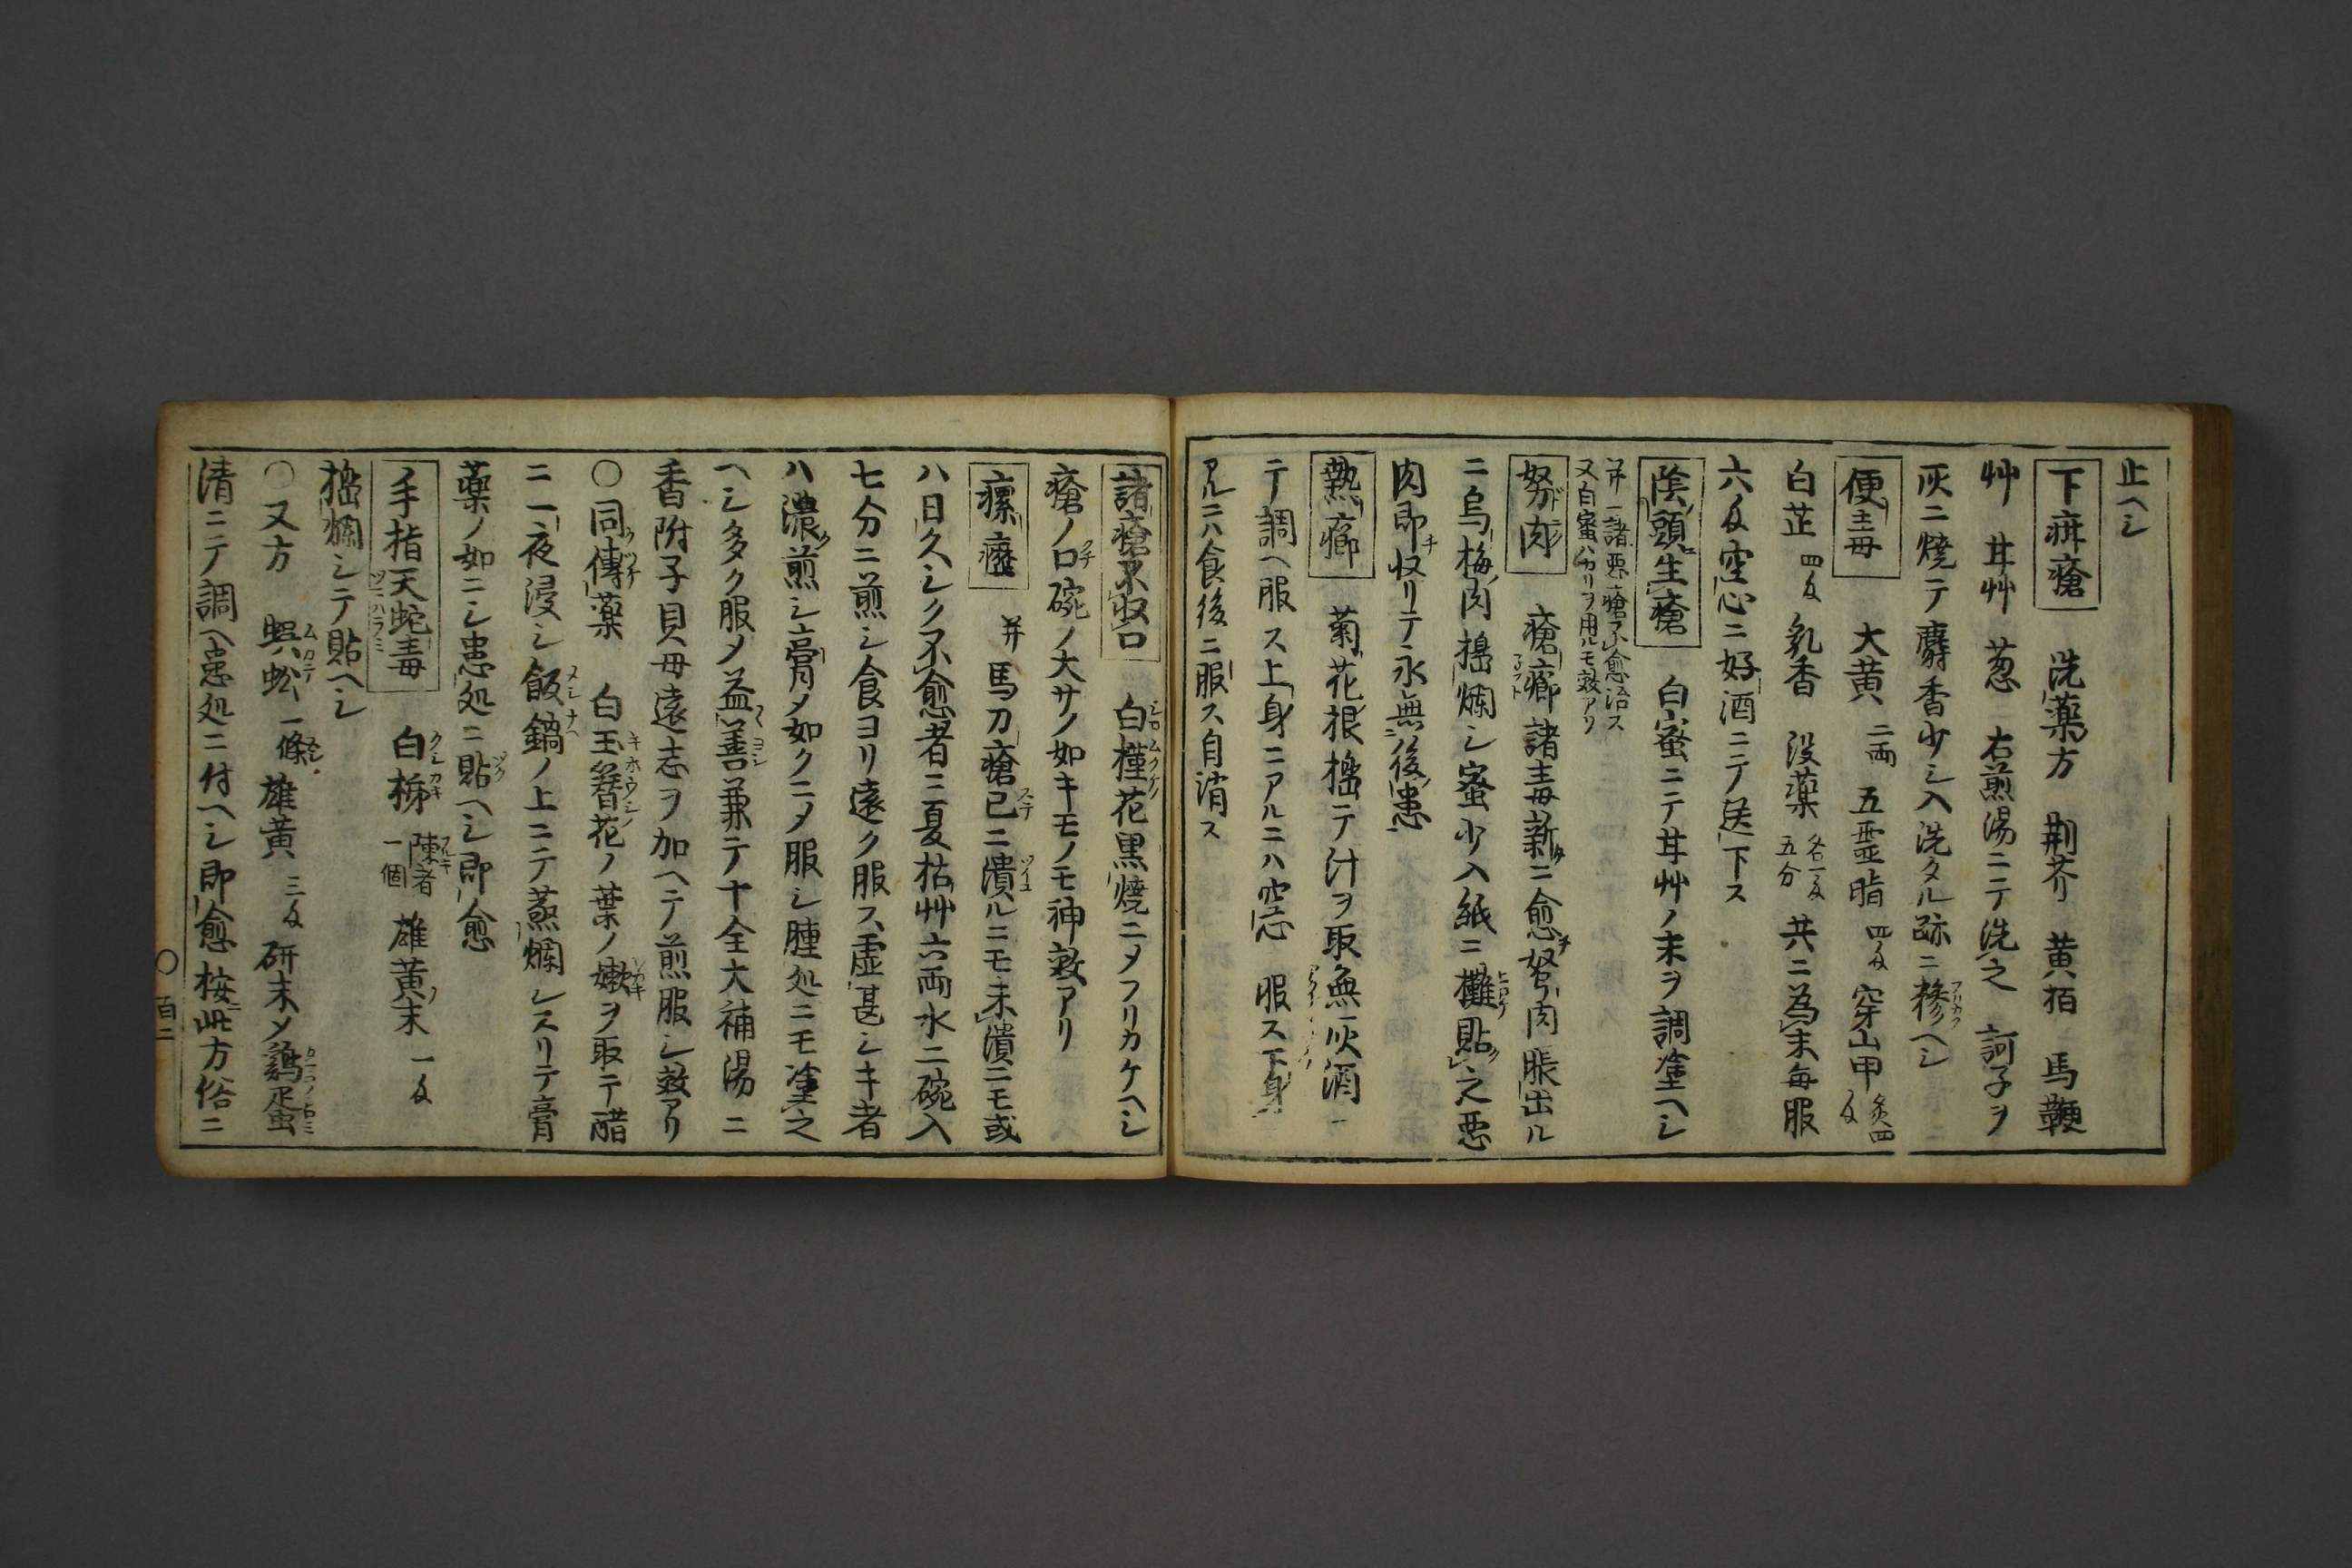 止ヘシ
下疳瘡 洗薬方 荆芥 黄栢 馬鞭
艸 甘艸 葱 右煎湯ニテ洗之 訶子ヲ
灰ニ焼テ麝香少シ入洗タル跡ニ糝ヘシ
便毒 大黄二両 五霊脂四匁 穿山甲炙四匁
白芷四匁 乳香 没薬各一匁五分 共ニ為末毎服
六匁空心ニ好酒ニテ送下ス
陰頭生瘡 白蜜ニテ甘艸ノ末ヲ調塗ヘシ
并一諸悪瘡不愈治ス
又白蜜ハカリヲ用ルモ效アリ
努肉 瘡癤諸毒新ニ愈努肉脹出ル
ニ烏梅肉搗爛シ蜜少入紙ニ攤貼之悪
肉即收リテ永無後患
熱癤 菊花根搗テ汁ヲ取無灰酒ニ
テ調ヘ服ス上身ニアルニハ空心服ス下身
アルニハ食後ニ服ス自消ス
諸瘡不収口 白槿花黒焼ニメフリカケヘシ
瘡ノ口碗ノ大サノ如キモノモ神效アリ
瘰癧 并馬刀瘡已ニ潰ルニモ未潰ニモ或
ハ日久シク不愈者ニ夏枯艸六両水二碗入
七分ニ煎シ食ヨリ遠ク服ス虚甚シキ者
ハ濃煎シ膏メ如クニメ服シ腫処ニモ塗之
ヘシ多ク服メ益善兼テ十全大補湯ニ
香附子貝母遠志ヲ加ヘテ煎服シ效アリ
〇同傅薬 白玉簪花ノ葉ノ嫩ヲ取テ醋
ニ一夜浸シ飯鍋ノ上ニテ蒸爛レスリテ膏
薬ノ如ニシ患処ニ貼ヘシ即愈
手指天蛇毒 白梯陳者一個 雄黄末一匁
搗爛シテ貼ヘシ
〇又方 蜈蚣一條 雄黄三匁 研末メ鶏蛋
清ニテ調ヘ患処ニ付ヘシ即愈按此方俗ニ
〇百二